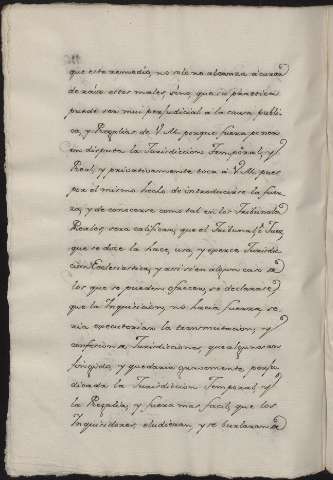 que este remedio, no solo no alcanza à curar
de raiz estos males, sino, que su practica
puede ser mui perjudicial à la causa publi
ca, y Regalias de V.M. porque fuera poner
en disputa la Jurisdiccion Temporal, y
Real, y privativamente toca à V.M. pues
por el mismo hecho de introducirse la fuer
za, y de conocerse como tal en los Tribunales
Reales, se califica, que el Tribunal, ò Juez,
que se dice la hace, usa, y exerce Jurisdic
cion Ecclesiastica, y assi si en algun caso de
los que se pueden ofrecer, se declarase
que la Inquisicion, no hacia fuerza, se
ria executoriar la transmutacion, y
confusion de Jurisdicciones, que algunos han
fingido, y quedaria gravemente, perju
dicada la Jurisdiccion Temporal, y
la Regalia, y fuera mas facil, que los
Inquisidores, eludieran, y se burlaran de